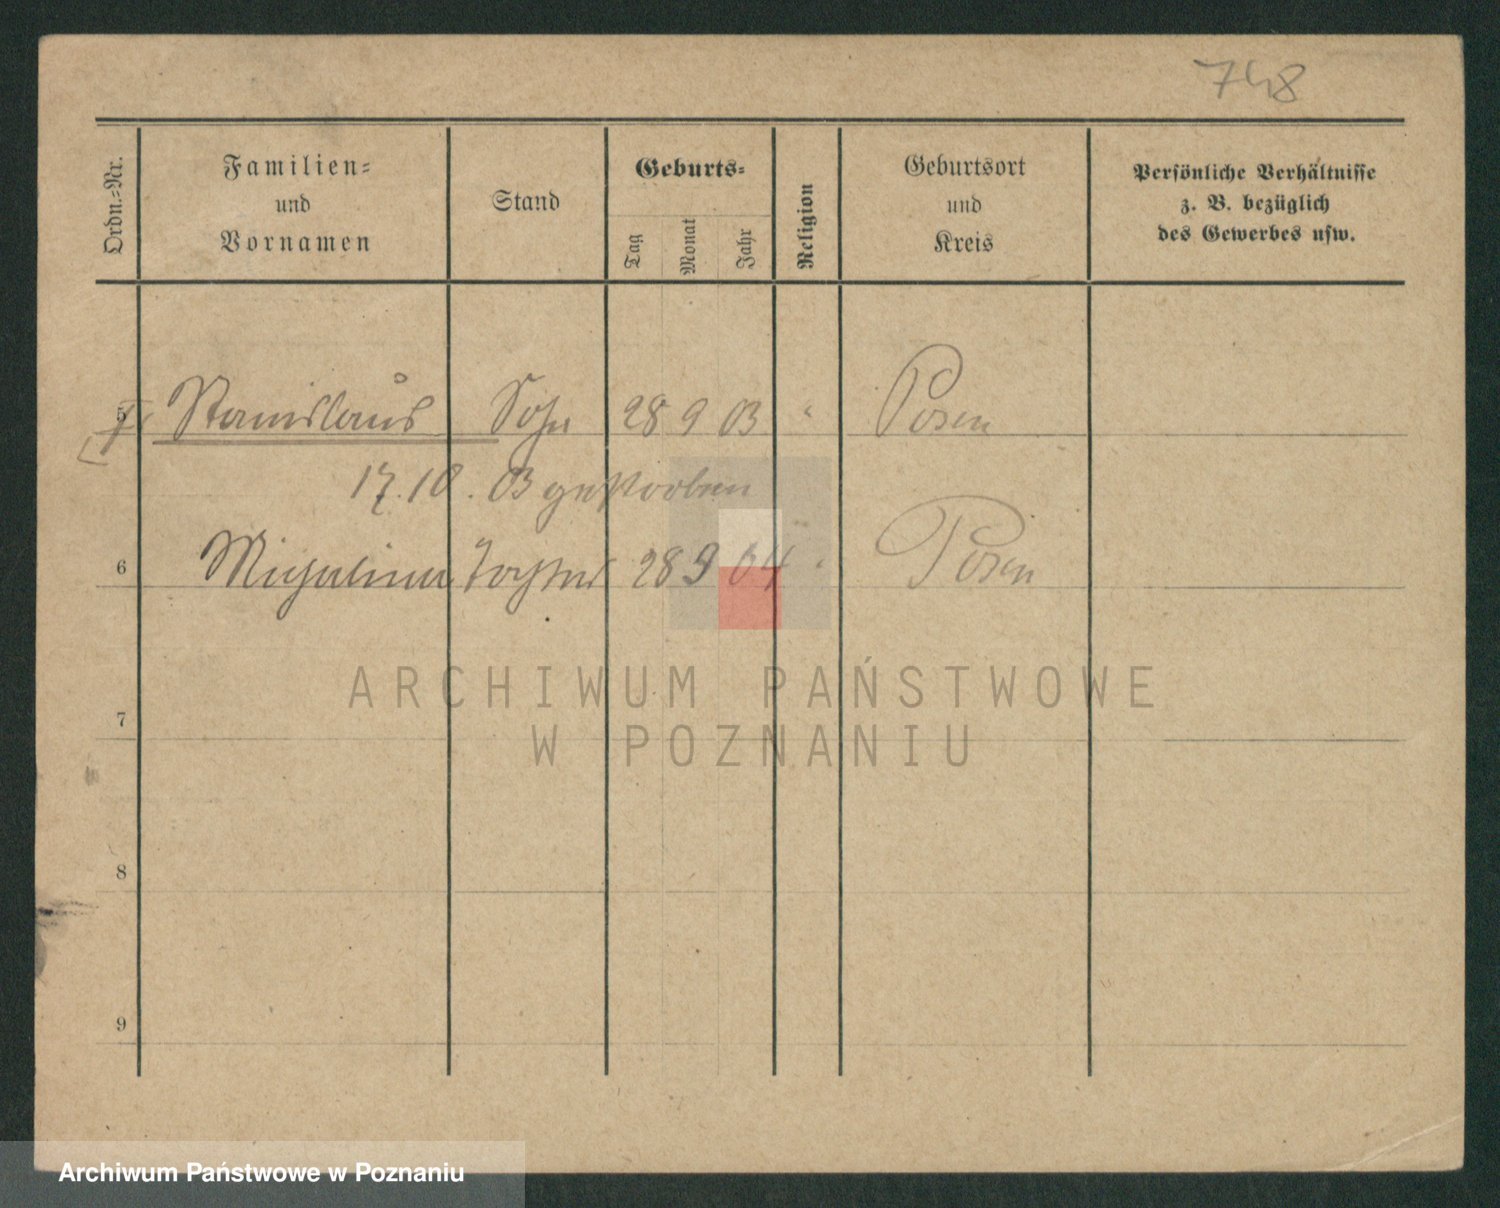 748
Ordn.-Nr. Familien- und Vornamen Stand Geburts- Tag Monat Jahr Religion Geburtsort und Kreis Persönliche Verhältnisse z. B. bezüglich des Gewerbes usw.
5 Stanislaus Sohn 28 9 03 " Posen
17.10. 03 gestorben
6 Tochter 28 9 04 " Posen
ARCHIWUM PAŃSTWOWE
W POZNANIU
7
8
9
Archiwum Państwowe w Poznaniu